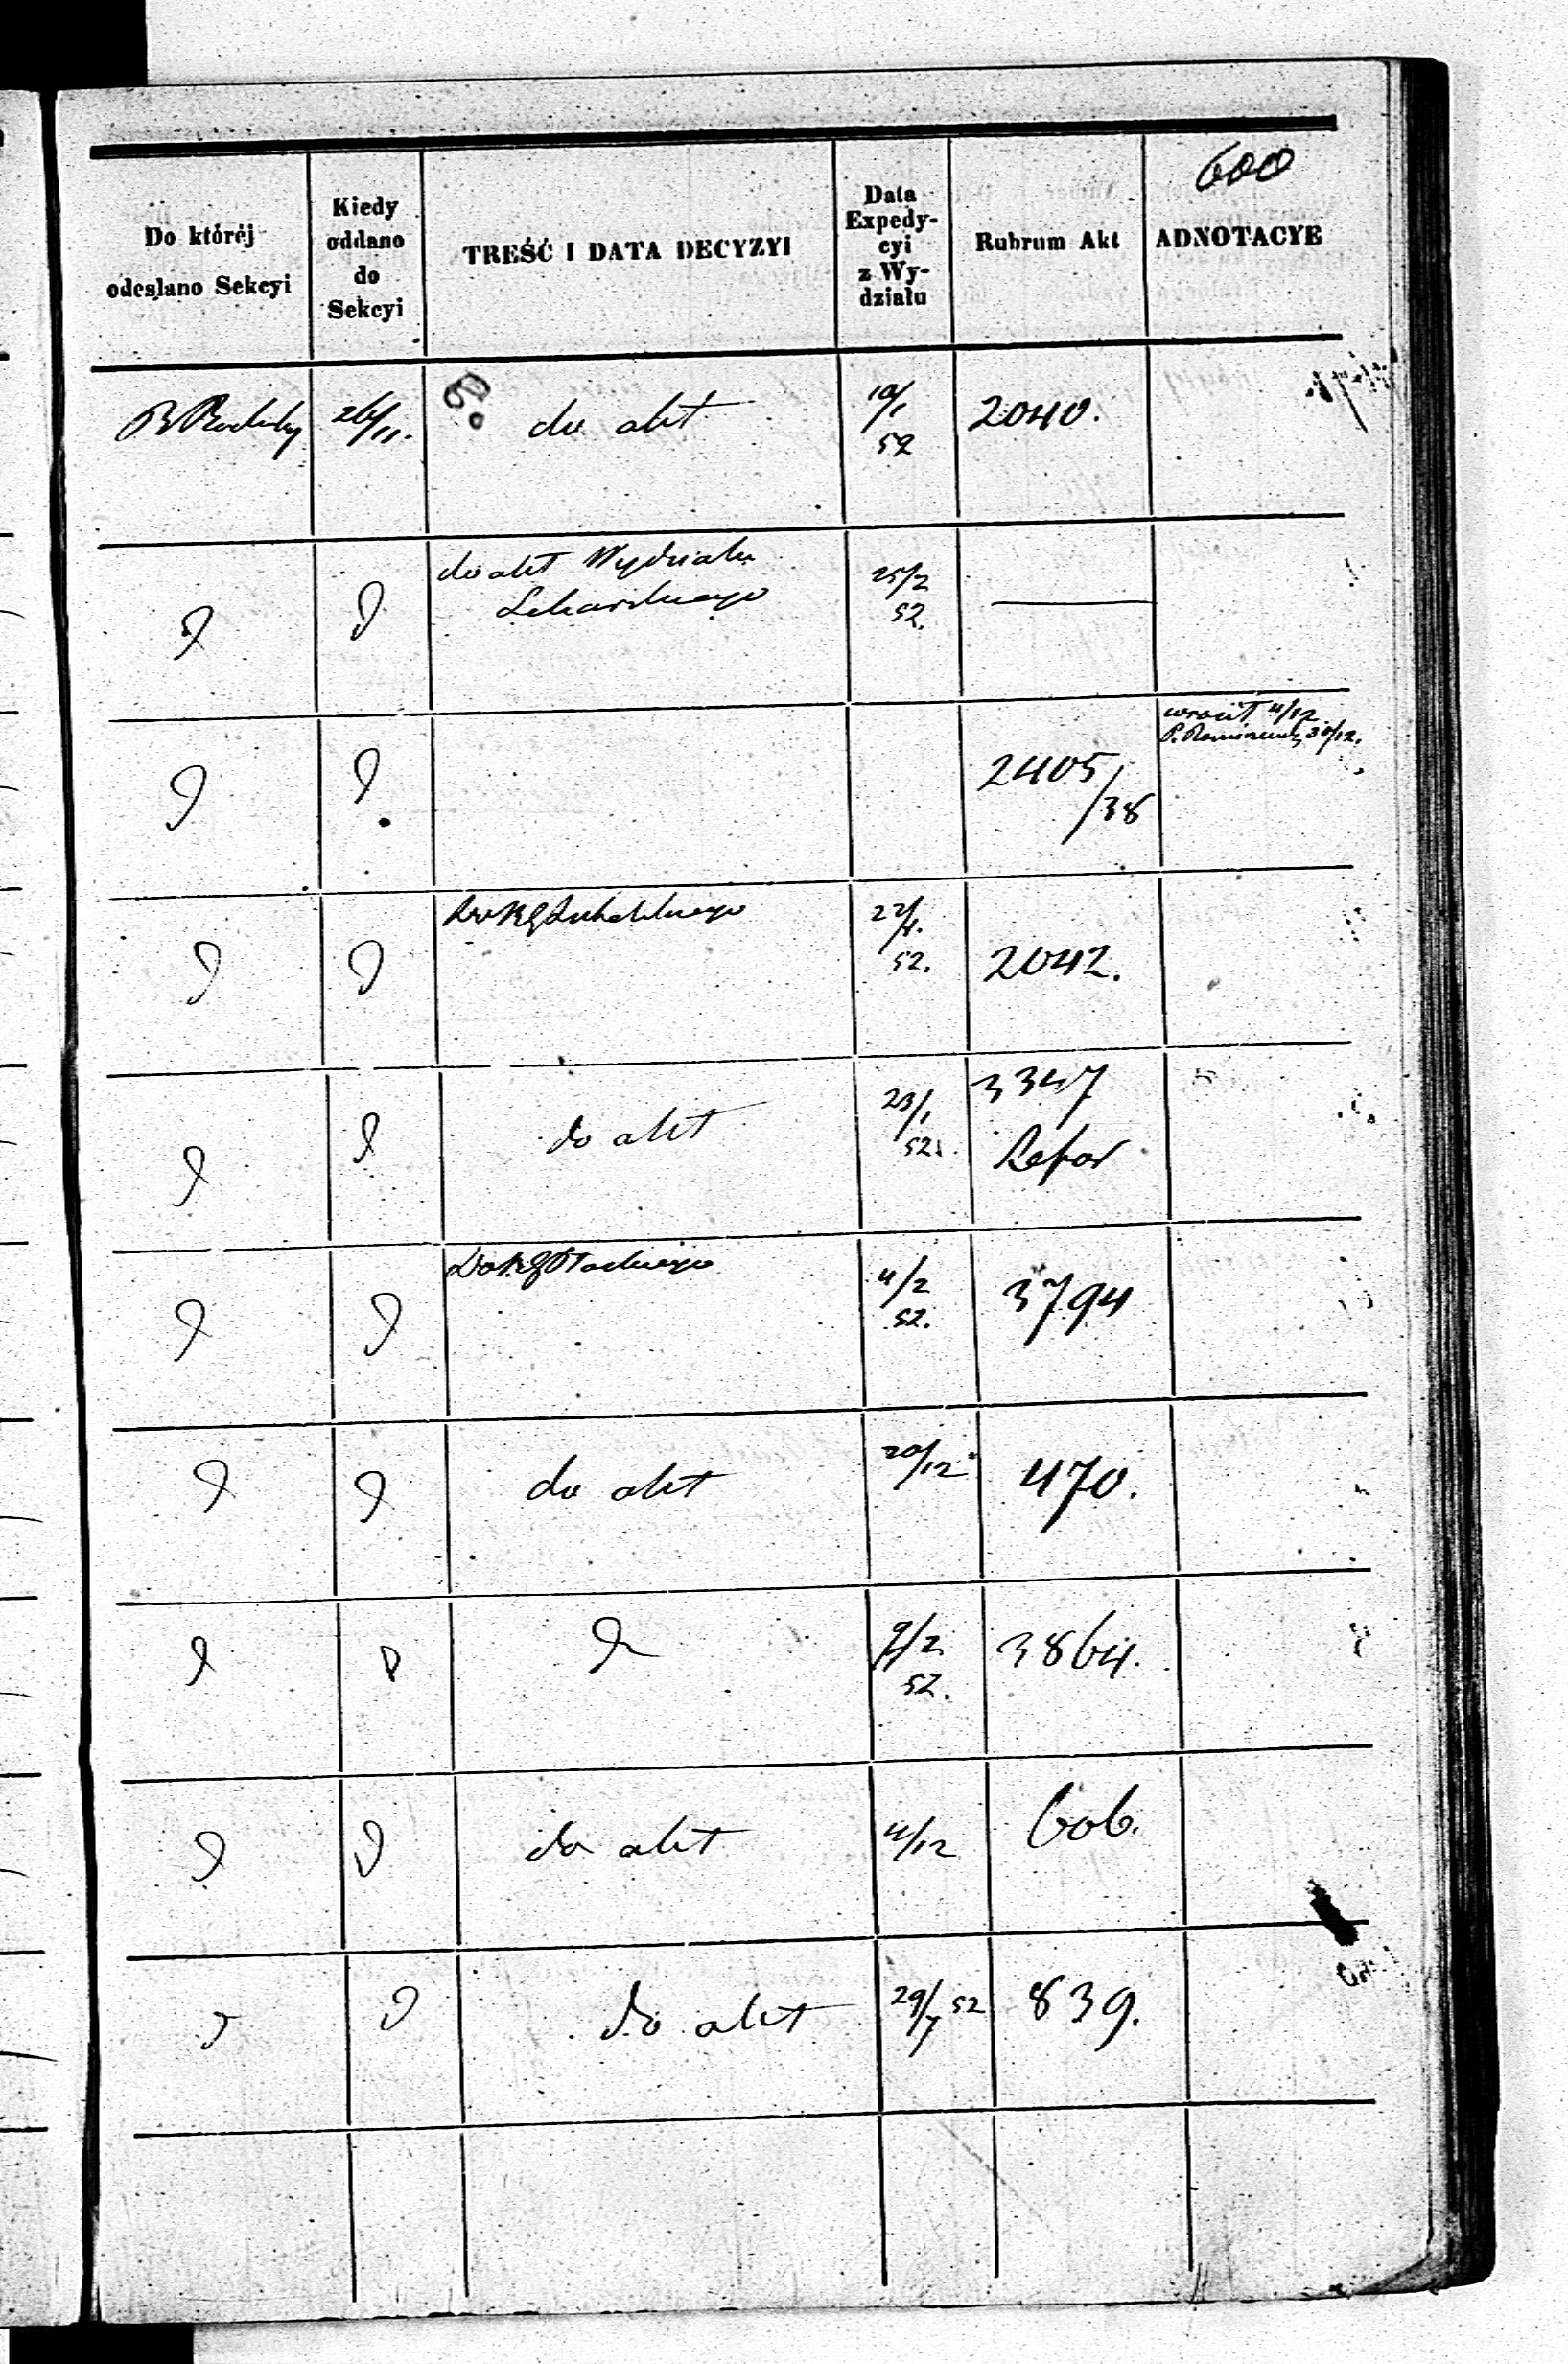 600
Do któréj
odesłano Sekcyi
Kiedy
oddano
do
Sekcyi
TREŚĆ I DATA DECYZYI
Data
Expedy-
cyi
z Wy-
działu
Rubrum Akt
ADNOTACYE
26/11.
do akt
10/1
52
2040.
do akt Wydziału
Lekarskiego
25/2
52.
wrócił 4/12
30/12.
2405
/38
Do RG Lubelskiego
22/1.
52.
2042.
do akt
23/1
52.
3347
Do RG Płockiego
4/2
52.
3794
do akt
20/12
470.
9/2
52.
3864.
do akt
4/12
606.
do akt
29/7 52
839.